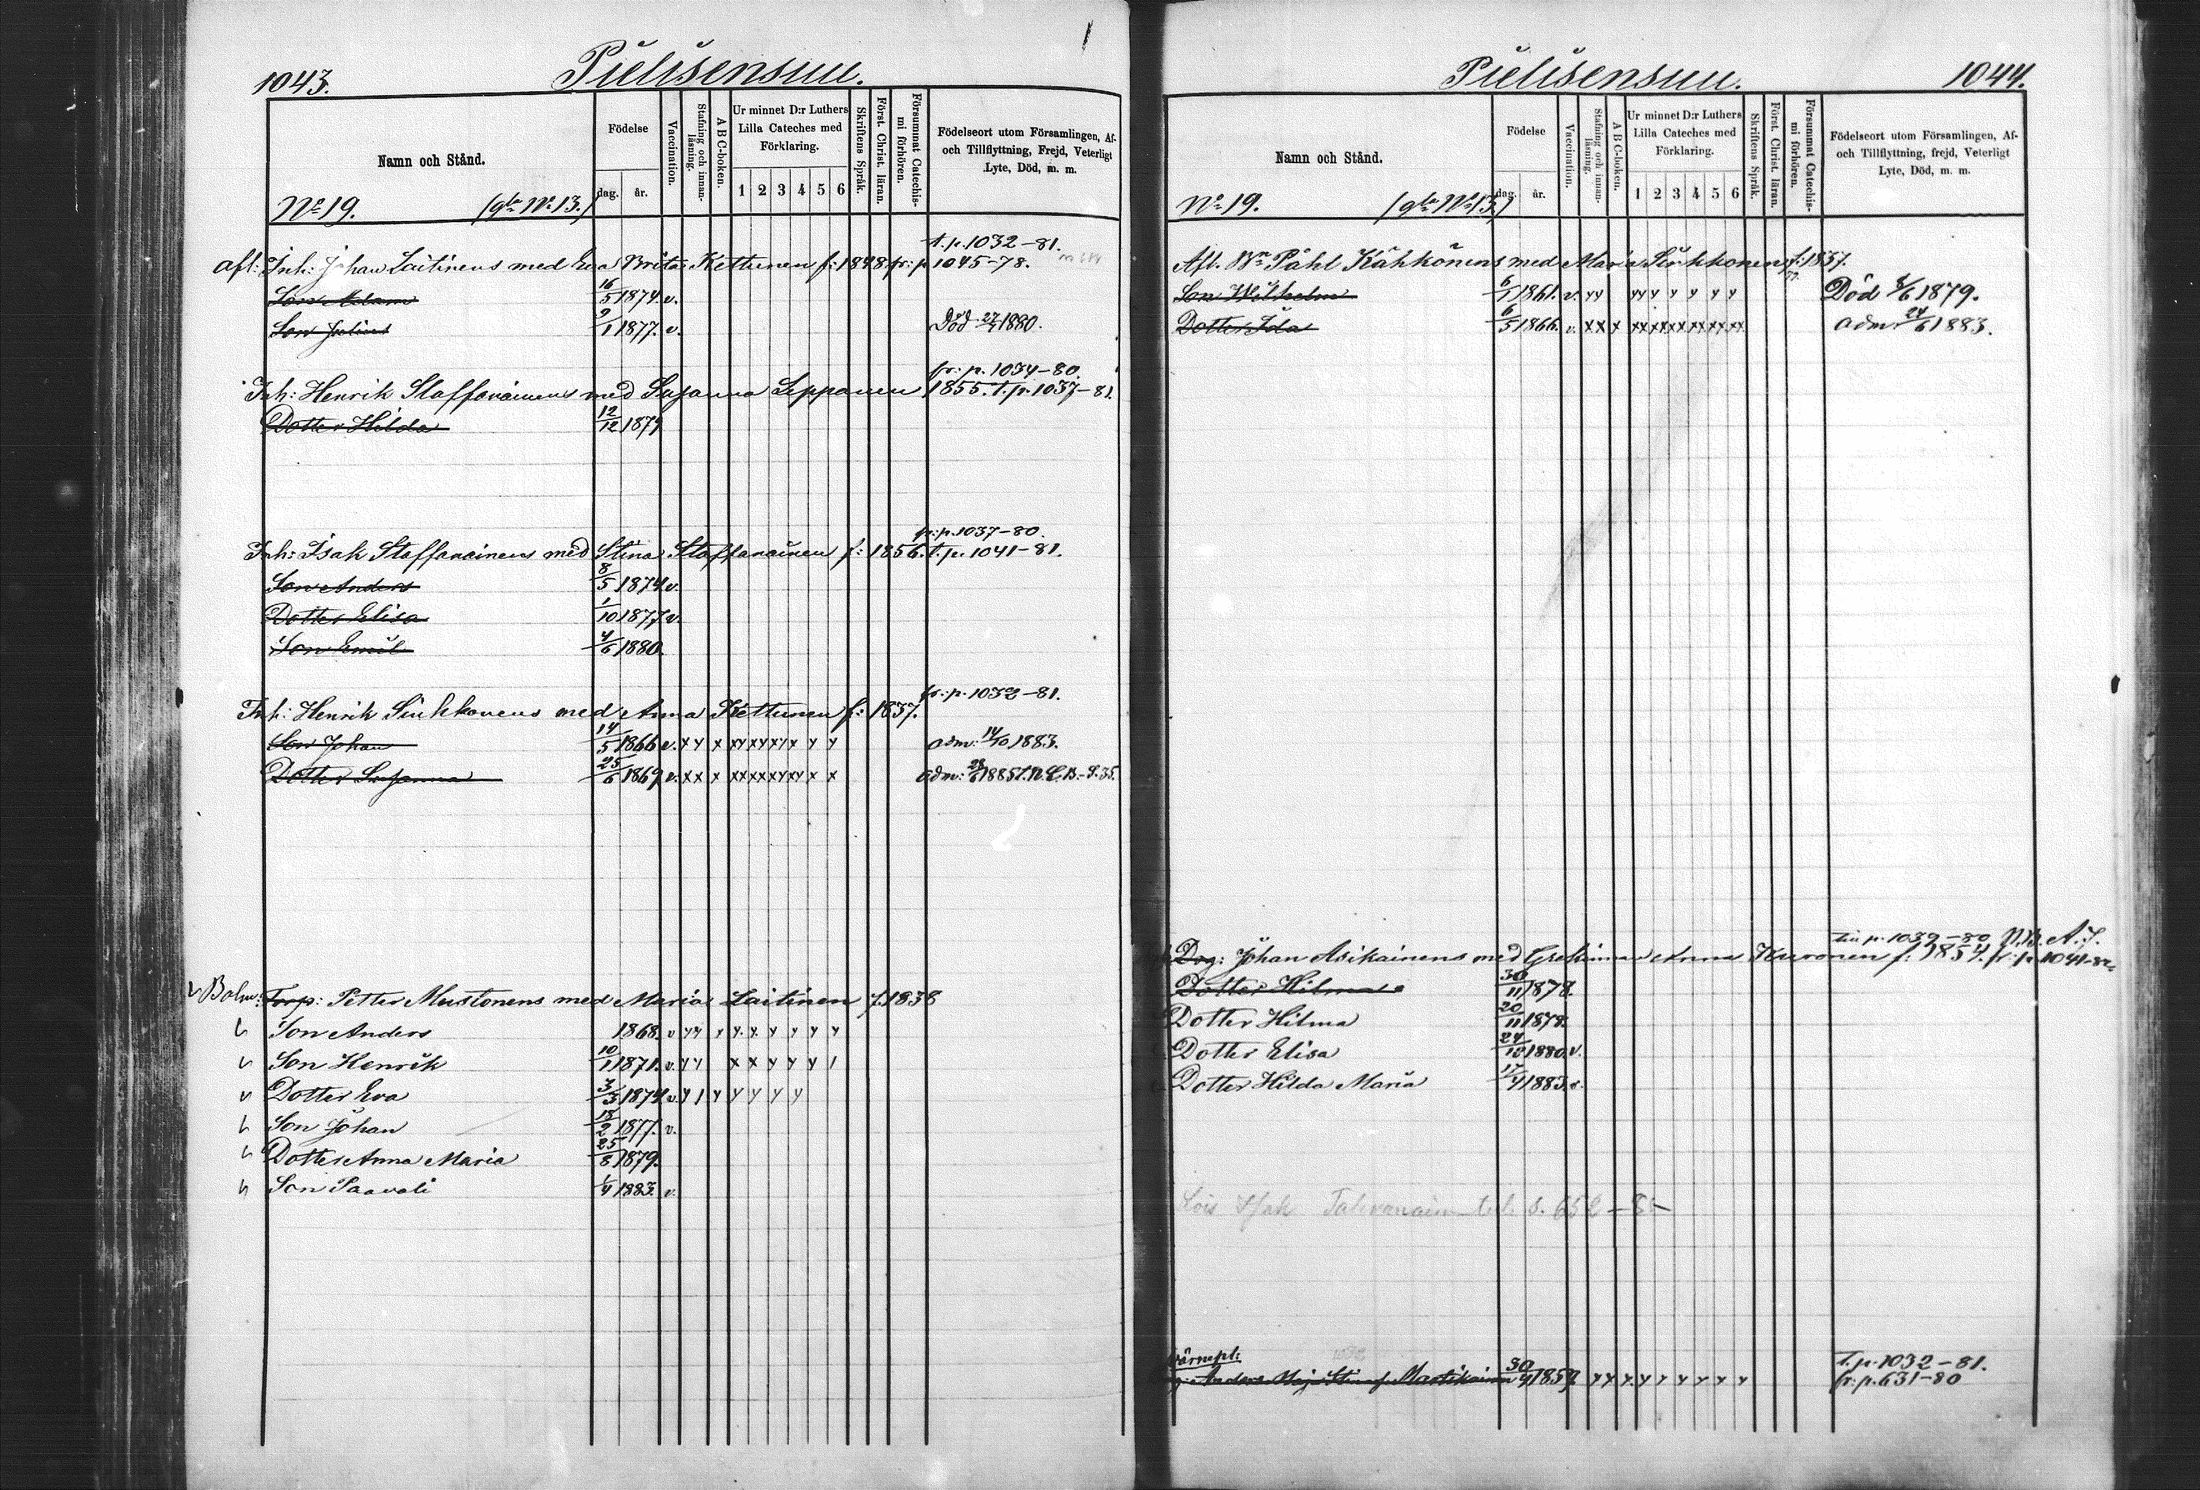 1
1043.
Pielisensuu.
Namn och Stånd.
Födelse
dag.
år.
Vaccination.
Stafning och innan-läsning.
A B C-boken.
Ur minnet D:r Luthers
Lilla Cateches med
Förklaring.
1 2 3 4 5 6
Skriftens Språk.
Först. Christ. läran.
Försummat Catechis-mi förhören.
Födelseort utom Församlingen, Af-
och Tillflyttning, Frejd, Veterligt
Lyte, Död, m. m.
No 19. (gla No 13.)
t. p. 1032-81.
afl: Inh: Johan Laitinens med Eva Brita Kettunen f: 1848 fr: p 1045-78.
Son Adam 16/5 1874. v.
Son Julius 9/1 1877. v. Död 1880.
fr: p. 1034-80.
Inh: Henrik Staffanainens med Susanna Leppanen 1855. t. p. 1037-81.
Dotter Hilda 12/12 1879
fr: p. 1037-80.
Inh: Isak Staffanainens med Stina Staffanainen f: 1856. t. p. 1041-81.
Son Anders 8/5 1874. v.
Dotter Elisa 1/10 1877. v.
Son Emil 4/6 1880.
fr: p. 1032-81.
Inh: Henrik Sirkkonens med Anna Kettunen f: 1837.
Son Johan 14/5 1866 v. x y x xy xy xy x y y adm: 14/10 1883.
Dotter Susanna 25/6 1869. v. x x x xx xx y xy x x adm: 28/6 1885
Bolm: Torp: Petter Mustonens med Maria Laitinen f. 1838
Son Anders 1868. v y y y y x y y y y
Son Henrik 10/1 1871. v. y y x x y y y 1
Dotter Eva 3/3 1874. v. y 1 y y y y y
Son Johan 18/2 1877. v.
Dotter Anna Maria 25/8 1879.
Son Paavali 1/4 1883. v.
Pielisensuu.
1044.
Namn och Stånd.
Födelse
dag.
år.
Vaccination.
Stafning och innan-läsning.
A B C-boken.
Ur minnet D:r Luthers
Lilla Cateches med
Förklaring.
1 2 3 4 5 6
Skriftens Språk.
Först. Christ. läran.
Försummat Catechis-mi förhören.
Födelseort utom Församlingen, Af-
och Tillflyttning, frejd, Veterligt
Lyte, Död, m. m.
No 19. (gla No 13.)
Afl. Påhl Kähkönens med Maria Sirkkonen f: 1837.
Son Wilhelm 6/1 1861. v. y y yy y y y y y Död 8/6 1879.
Dotter Ida 6/5 1866. v. x x x xx xx xx xx xx xx adm: 24/6 1883.
p. 1039-80
Johan Asikainens med Anna Kuronen f. 1854. fr: p. 1041-82
Dotter Hilma 30/11 1878.
Dotter Hilma 20/11 1878.
Dotter Elisa 24/12 1880. v.
Dotter Hilda Maria 17/4 1883. v.
Lois Isak s. 652-8
Värnepl: t. p. 1032-81.
Anders Martikainen 30/4 1859 y y y y y y y y y fr: p. 631-80